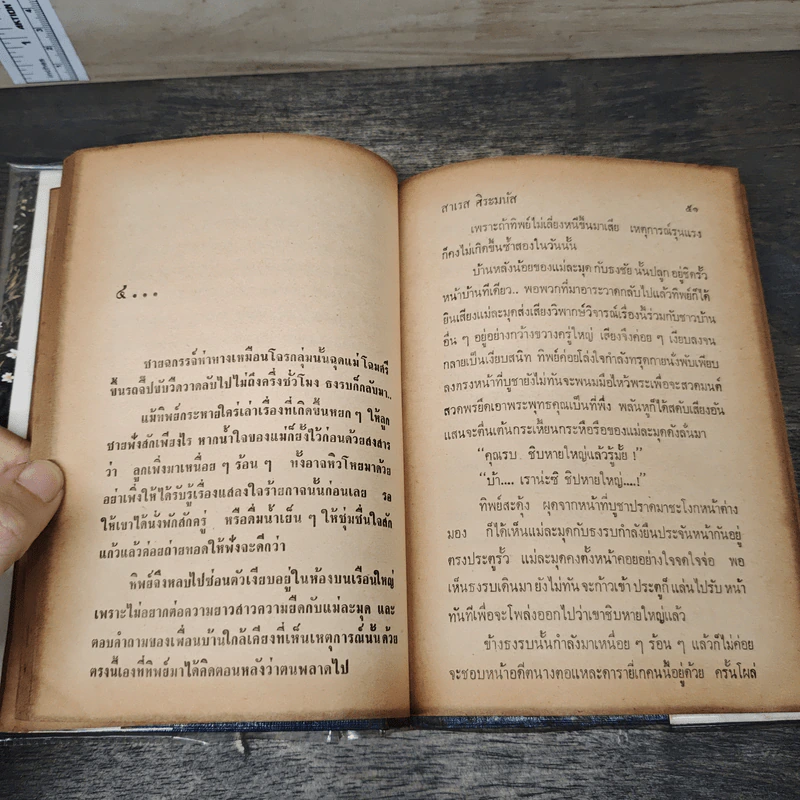 ๔...
ชายฉกรรจ์ท่าทางเหมือนโจรกลุ่มนั้นฉุดแม่โฉมศรี
ขึ้นรถจี๊ปขับวืดวาดลับไปไม่ถึงครึ่งชั่วโมง ธงรบก็กลับมา..
แม้ทิพย์กระหายใคร่เล่าเรื่องที่เกิดขึ้นหยก ๆ ให้ลูก
ชายฟังสักเพียงไร หากน้ำใจของแม่ก็ยั้งไว้ก่อนด้วยสงสาร
ว่า ลูกเพิ่งมาเหนื่อย ๆ ร้อน ๆ ทั้งอาจหิวโหยมาด้วย
อย่าเพิ่งให้ได้รับรู้เรื่องแสลงใจร้ายกาจนั้นก่อนเลย รอ
ให้เขาได้นั่งพักสักครู่ หรือดื่มน้ำเย็น ๆ ให้ชุ่มชื่นใจสัก
แก้วแล้วค่อยถ่ายทอดให้ฟังจะดีกว่า
ทิพย์จึงหลบไปซ่อนตัวเงียบอยู่ในห้องบนเรือนใหญ่
เพราะไม่อยากต่อความยาวสาวความยืดกับแม่ละมุด และ
ตอบคำถามของเพื่อนบ้านใกล้เคียงที่เห็นเหตุการณ์นั้นด้วย
ตรงนี้เองที่ทิพย์มาได้คิดตอนหลังว่าตนพลาดไป
สาเรส ศิระมบัส
๕๑
เพราะถ้าทิพย์ไม่เลี่ยงหนีขึ้นมาเสีย เหตุการณ์รุนแรง
ก็คงไม่เกิดขึ้นซ้ำสองในวันนั้น
บ้านหลังน้อยของแม่ละมุด กับธงชัย นั้นปลูก อยู่ชิดรั้ว
หน้าบ้านทีเดียว.. พอพวกที่มาอาระวาดกลับไปแล้วทิพย์ก็ได้
ยินเสียงแม่ละมุดส่งเสียงวิพากษ์วิจารณ์เรื่องนี้ร่วมกับชาวบ้าน
อื่น ๆ อยู่อย่างกว้างขวางครู่ใหญ่ เสียงจึงค่อย ๆ เงียบลงจน
กลายเป็นเงียบสนิท ทิพย์ค่อยโล่งใจกำลังทรุดกายนั่งพับเพียบ
ลงตรงหน้าที่บูชายังไม่ทันจะพนมมือไหว้พระเพื่อจะสวดมนต์
สวดพรยึดเอาพระพุทธคุณเป็นที่พึ่ง พลันหูก็ได้สดับเสียงอัน
แสนจะตื่นเต้นกระเหี้ยนกระหือรือของแม่ละมุดดังลั่นมา
“คุณรบ . ชิบหายใหญ่แล้วรู้มั้ย !”
“บ้า.... เราน่ะซิ ชิปหายใหญ่....!”
ทิพย์สะดุ้ง ผุดจากหน้าที่บูชาปราดมาชะโงกหน้าต่าง
มอง ก็ได้เห็นแม่ละมุดกับธงรบกำลังยืนประจันหน้ากันอยู่
ตรงประตูรั้ว แม่ละมุดคงตั้งหน้าคอยอย่างใจจดใจจ่อ พอ
เห็นธงรบเดินมา ยังไม่ทัน จะก้าวเข้า ประตูก็ แล่นไปรับ หน้า
ทันทีเพื่อจะโพล่งออกไปว่าเขาชิบหายใหญ่แล้ว
ข้างธงรบนั้นกำลังมาเหนื่อย ๆ ร้อน ๆ แล้วก็ไม่ค่อย
จะชอบหน้าอดีตนางตอแหละดารายี่เกคนนี้อยู่ด้วย ครั้นโผล่